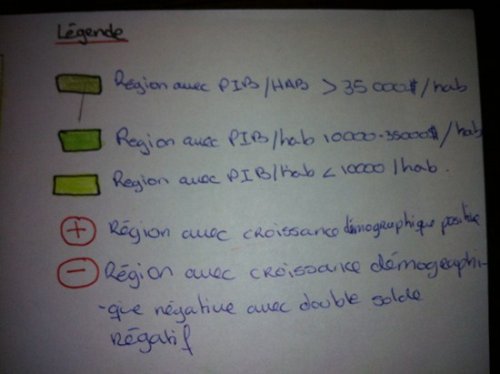 Légende
Région avec PIB/HAB > 35 000$/hab
Région avec PIB/hab 10000-35000$/hab
Région avec PIB/hab < 10000/hab.
+ Région avec croissance démographique positive
- Région avec croissance démographi-
-que négative avec double solde
négatif